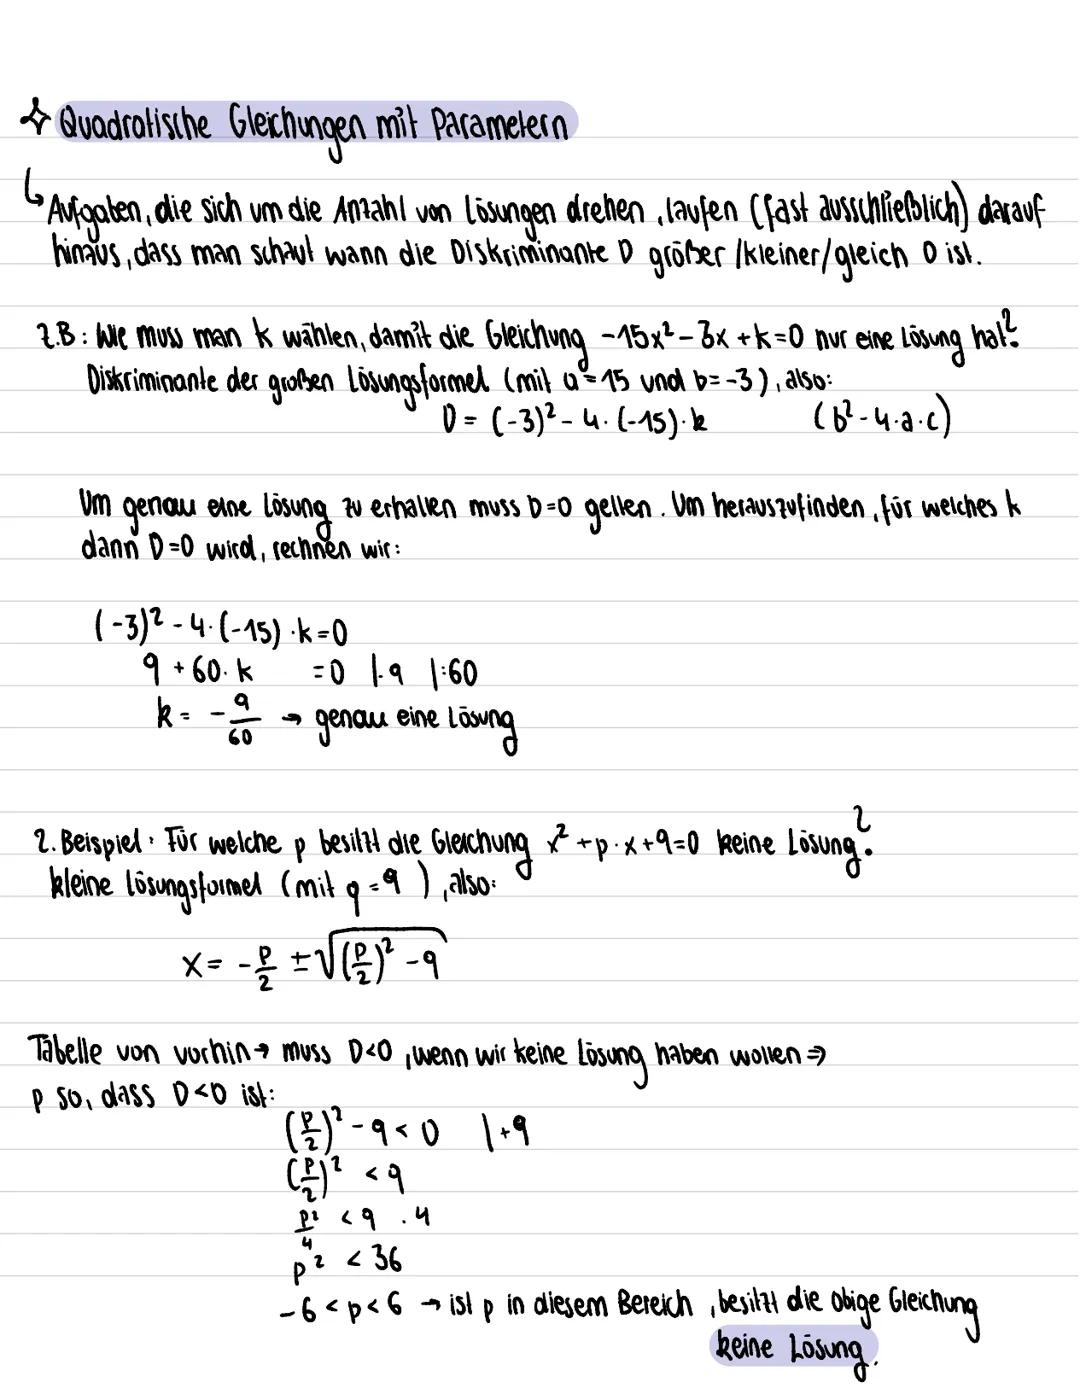 Quadratische Gleichungen mit Parametern
Aufgaben, die sich um die Anzahl von Lösungen drehen, laufen (fast ausschließlich) darauf
hinaus, dass man schaut wann die Diskriminante D größer/kleiner/gleich 0 ist.
z.B: Wie muss man k wählen, damit die Gleichung -15x² - 3x + k = 0 nur eine Lösung hat?
Diskriminante der großen Lösungsformel (mit a = 15 und b = -3), also:
D = (-3)² - 4 · (-15) · k (b² - 4 · a · c)
Um genau eine Lösung zu erhalten muss D=0 gelten. Um herauszufinden, für welches k
dann D=0 wird, rechnen wir:
(-3)² - 4 · (-15) · k = 0
9 + 60 · k = 0 |-9 |:60
k = -9/60 → genau eine Lösung
2. Beispiel: Für welche p besitzt die Gleichung x² + p · x + 9 = 0 keine Lösung?
kleine Lösungsformel (mit q = 9), also:
x = -p/2 ± √((p/2)² - 9)
Tabelle von vorhin → muss D<0, wenn wir keine Lösung haben wollen ⇒
p so, dass D<0 ist:
(p/2)² - 9 < 0 |+9
(p/2)² < 9
p²/4 < 9 · 4
p² < 36
-6 < p < 6 → ist p in diesem Bereich, besitzt die obige Gleichung
keine Lösung.